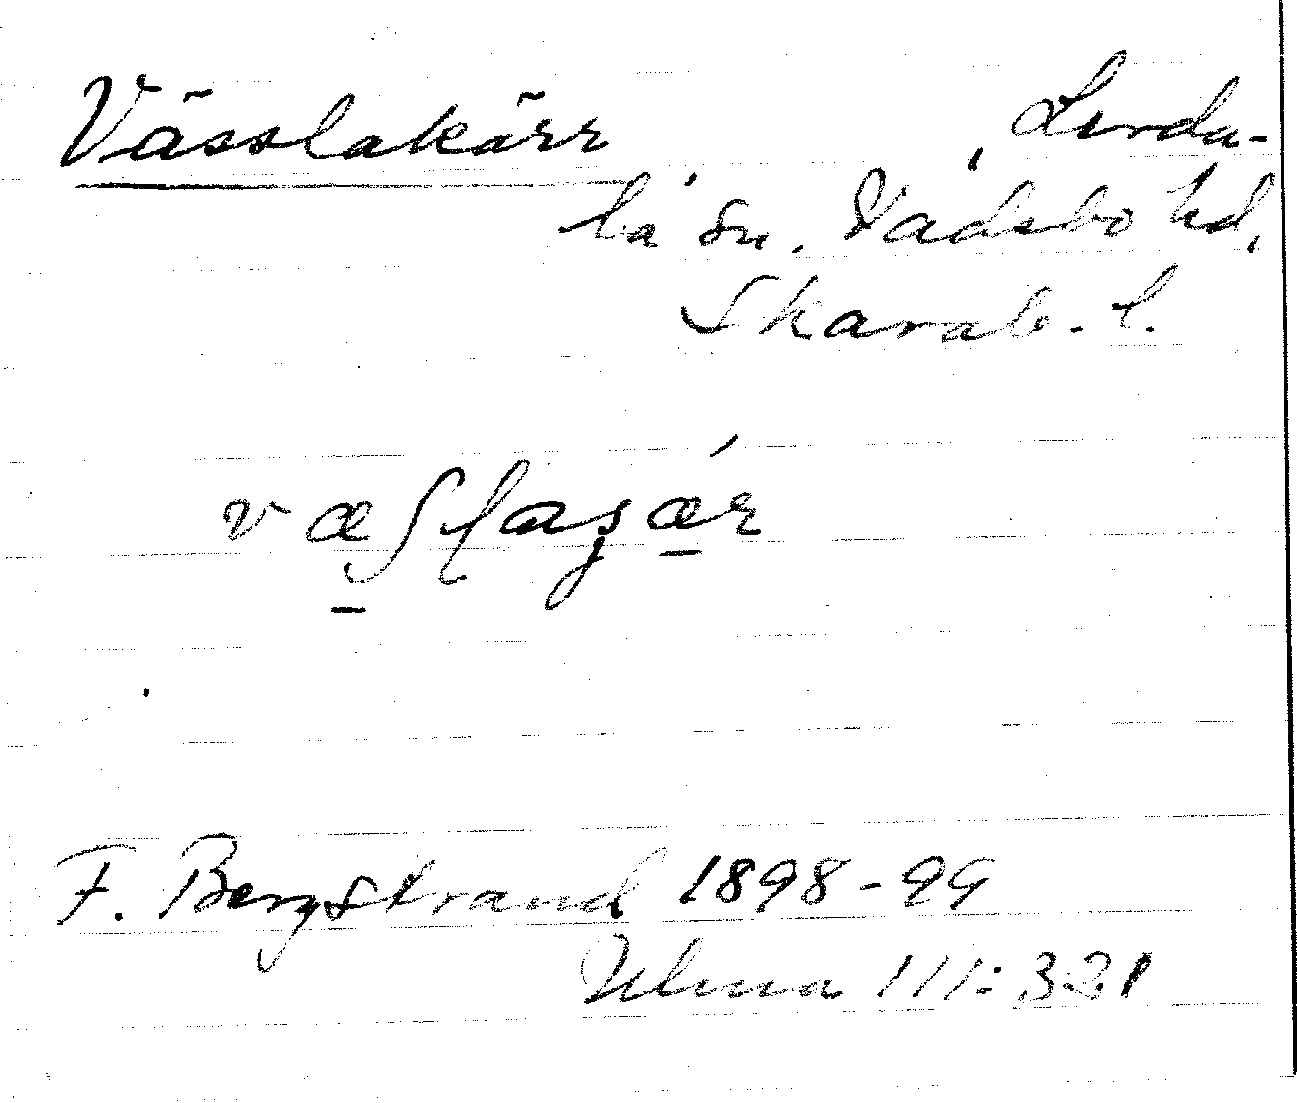 Vässlakärr, Lerda-
la sn. Vadsbo hd,
Skarab. l.
F. Bergstrand 1898-99
Ulma 111:321